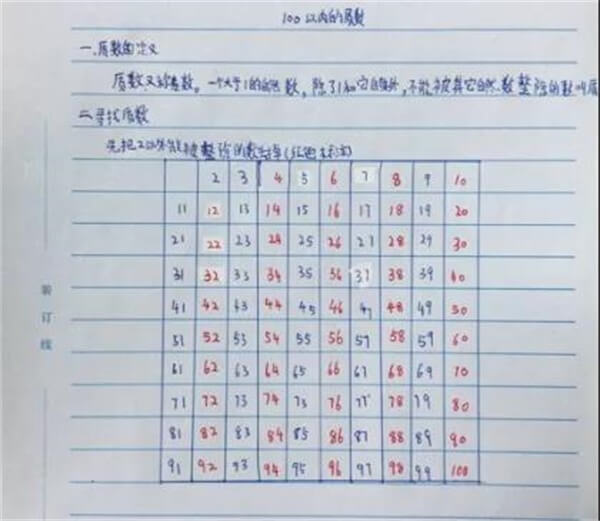 100以内的质数
一.质数的定义
质数又称素数。一个大于1的自然数，除了1和它自身外，不能被其它自然数整除的数叫质
二.寻找质数
先把2以外能被整除的数划掉(红色标注)
2 3 4 5 6 7 8 9 10
11 12 13 14 15 16 17 18 19 20
21 22 23 24 25 26 27 28 29 30
31 32 33 34 35 36 37 38 39 40
41 42 43 44 45 46 47 48 49 50
51 52 53 54 55 56 57 58 59 60
61 62 63 64 65 66 67 68 69 70
71 72 73 74 75 76 77 78 79 80
81 82 83 84 85 86 87 88 89 90
91 92 93 94 95 96 97 98 99 100
装订线